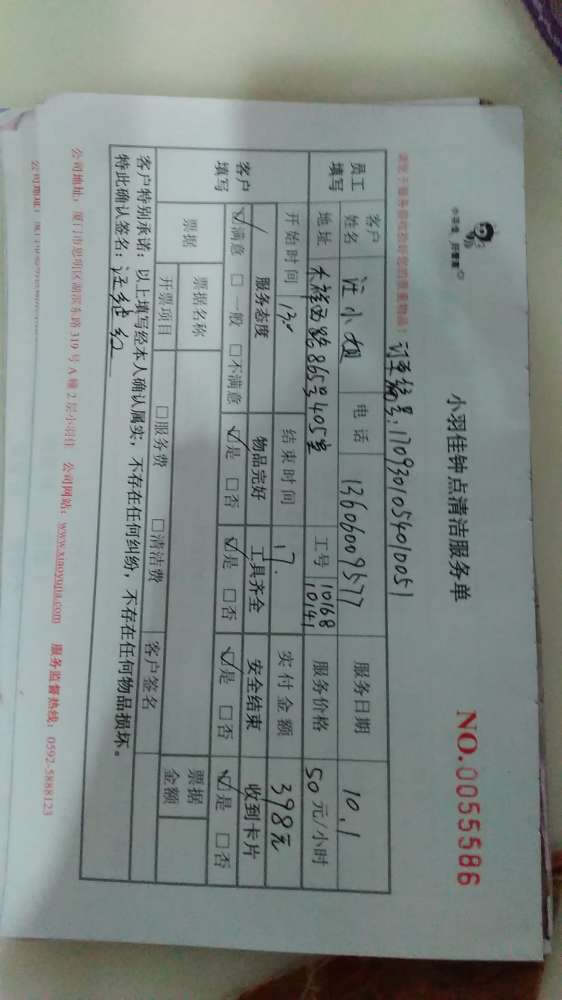 小羽佳 好管家
小羽佳钟点清洁服务单
NO.0055586
订单编号:1709301054010051
员工填写
客户姓名 汪小姐 电话 13606009577 服务日期 10.1
地址 865号405室 工号 10168 10141 服务价格 50元/小时
开始时间 13 结束时间 17. 实付金额 398元
客户填写
服务态度 物品完好 工具齐全 安全结束 收到卡片
☑满意 □一般 □不满意 ☑是 □否 ☑是 □否 ☑是 □否 ☑是 □否
票据 票据名称 票据金额
开票项目 □服务费 □清洁费 客户签名
客户特别承诺:以上填写经本人确认属实,不存在任何纠纷,不存在任何物品损坏。
特此确认签名:
公司地址:厦门市思明区湖滨东路319号A幢2层小羽佳 公司网站:www.xiaoyujia.com 服务监督热线:0592-5888123